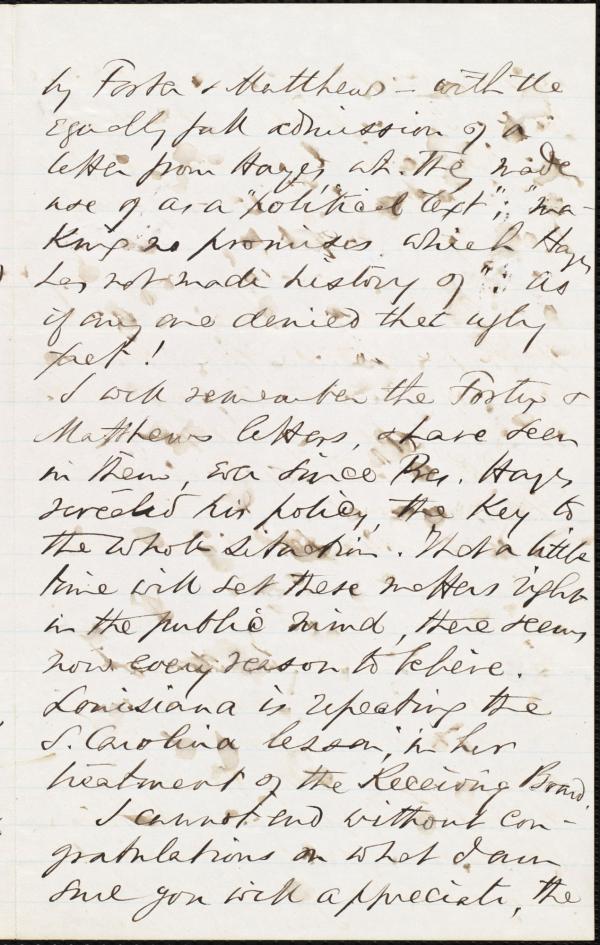 by Foster & Matthews – with the
equally full admission of a
letter from Hayes, wh. they made
use of as a "political text"; "ma-
king no promises which Hayes
has not made history of": as
if any one denied that ugly
fact!
I well remember the Foster &
Matthews letters, & have seen
in them, ever since Pres. Hayes
revealed his policy, the key to
the whole situation. That a little
time will set these matters right
in the public mind, there seems
now every reason to believe.
Louisiana is repeating the
S. Carolina lesson, in her
treatment of the Receiving Board.
I cannot end without con-
gratulations on what I am
sure you will appreciate, the